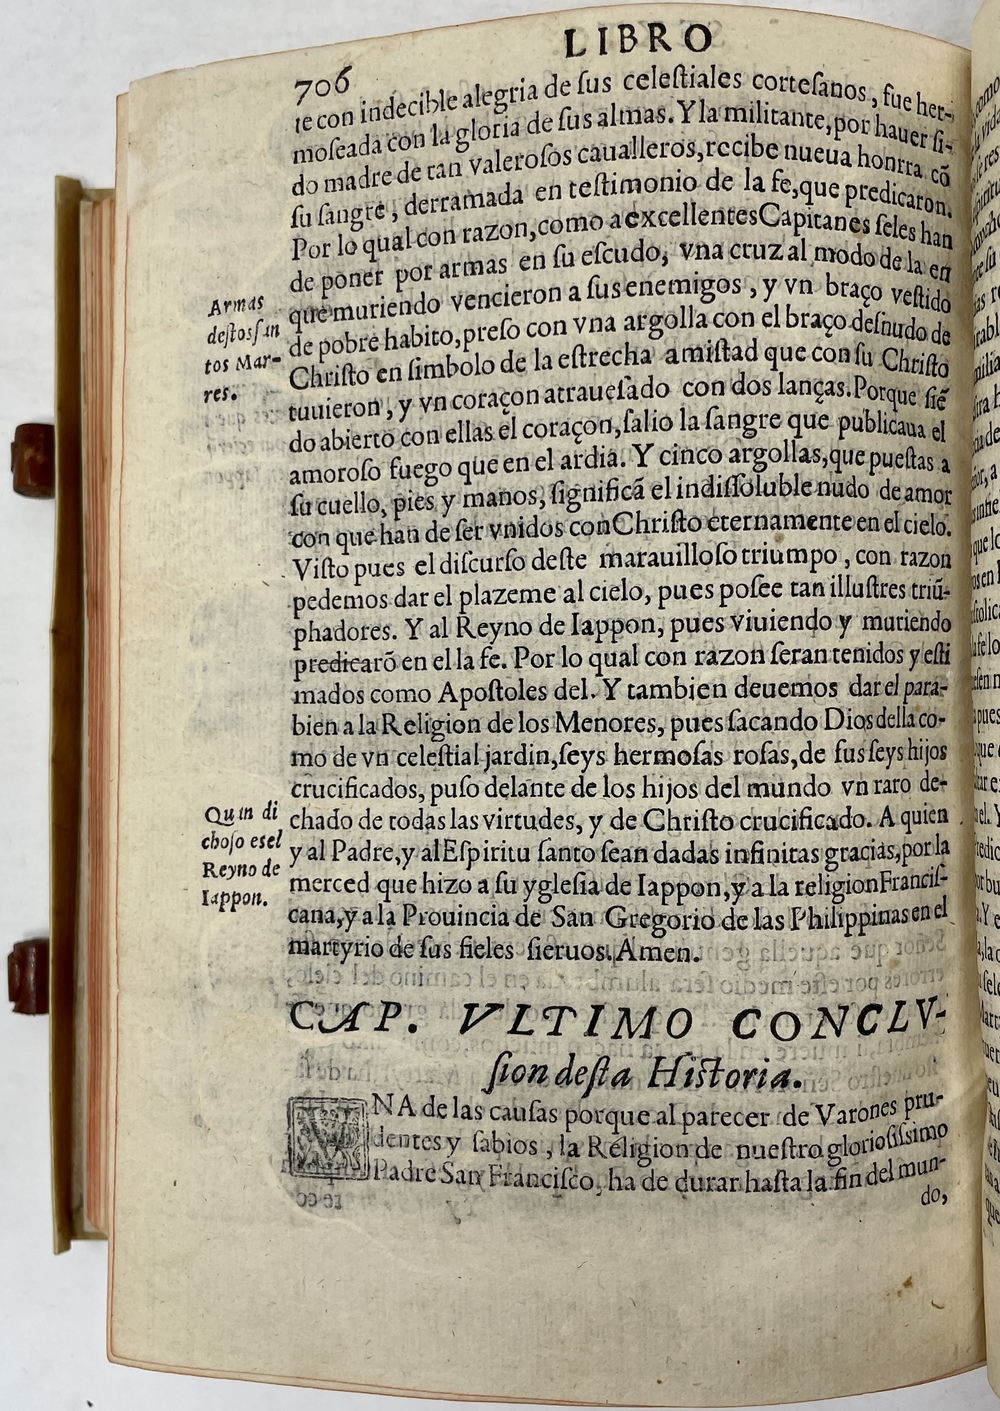 LIBRO
706
te con indecible alegria de sus celestiales cortesanos, fue her-
moseada con la gloria de sus almas. Y la militante, por hauer si-
do madre de tan valerosos caualleros, recibe nueua honrra cõ
su sangre, derramada en testimonio de la fe, que predicaron.
Por lo qual con razon, como a excellentes Capitanes seles han
de poner por armas en su escudo, vna cruz al modo de la en
que muriendo vencieron a sus enemigos, y vn braço vestido
de pobre habito, preso con vna argolla con el braço desnudo de
Christo en simbolo de la estrecha amistad que con su Christo
tuuieron, y vn coraçon atrauesado con dos lanças. Porque siẽ
do abierto con ellas el coraçon, salio la sangre que publicaua el
amoroso fuego que en el ardia. Y cinco argollas, que puestas a
su cuello, pies y manos, significã el indissoluble nudo de amor
con que han de ser vnidos con Christo eternamente en el cielo.
Visto pues el discurso deste marauilloso triumpo, con razon
pedemos dar el plazeme al cielo, pues posee tan illustres triũ-
phadores. Y al Reyno de Iappon, pues viuiendo y muriendo
predicarõ en el la fe. Por lo qual con razon seran tenidos y esti
mados como Apostoles del. Y tambien deuemos dar el para-
bien a la Religion de los Menores, pues sacando Dios della co-
mo de vn celestial jardin, seys hermosas rosas, de sus seys hijos
crucificados, puso delante de los hijos del mundo vn raro de-
chado de todas las virtudes, y de Christo crucificado. A quien
y al Padre, y al Espiritu santo sean dadas infinitas gracias, por la
merced que hizo a su yglesia de Iappon, y a la religion Francis-
cana, y a la Prouincia de San Gregorio de las Philippinas en el
martyrio de sus fieles sieruos. Amen.
Armas
destos san
tos Mar-
res.
Quan di
choso es el
Reyno de
Iappon.
CAP. VLTIMO CONCLV-
sion desta Historia.
VNA de las causas porque al parecer de Varones pru-
dentes y sabios, la Religion de nuestro gloriosissimo
Padre San Francisco, ha de durar hasta la fin del mun-
do,